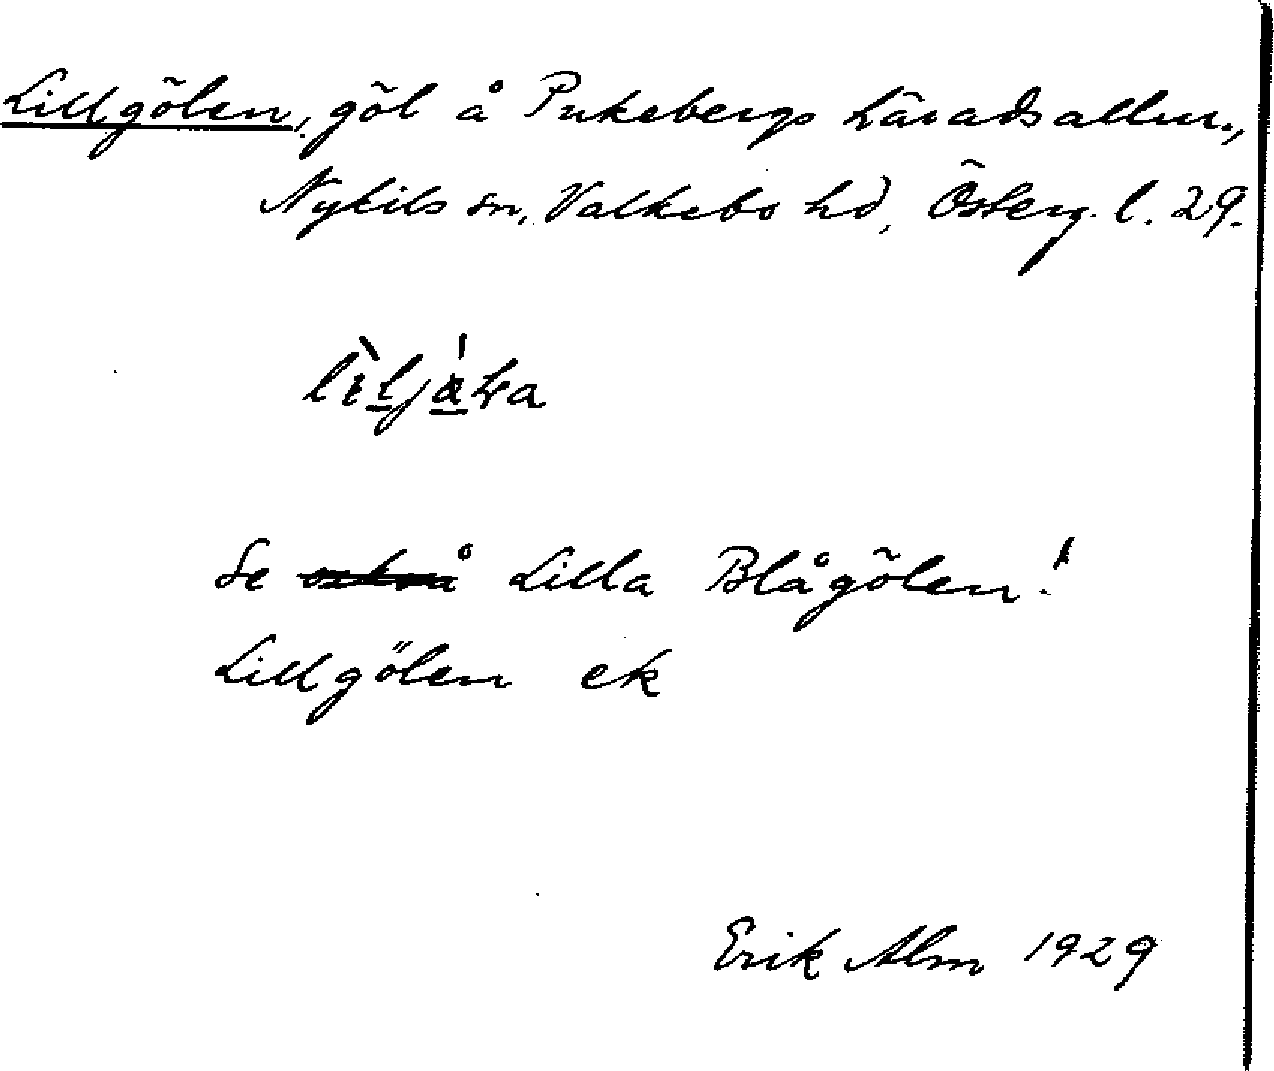 Lillgölen, göl å Pukebergs häradsallm.,
Nykils sn, Valkebo hd, Österg. l. 29.
Se också Lilla Blågölen!
Lillgölen ek
Erik Alm 1929